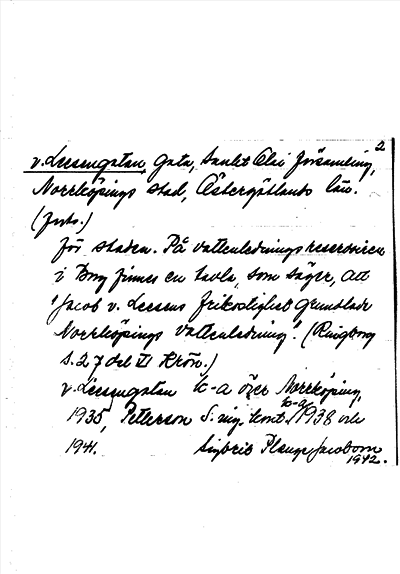 2
v. Leesengatan, Gata, Sankt Olai församling,
Norrköpings stad, Östergötlands län.
(forts.)
för staden. På vattenledningsreservoiren
i Borg finnes en tavla, som säger, att
"Jacob v. Leesens frikostighet grundlade
Norrköpings vattenledning". (Ringborg
s. 27 del III Krön.)
v. Leesengatan k-a över Norrköping,
1935, Petterson S. ing. kont. k-a 1938 och
1941. Plenge Jacobson
1942.